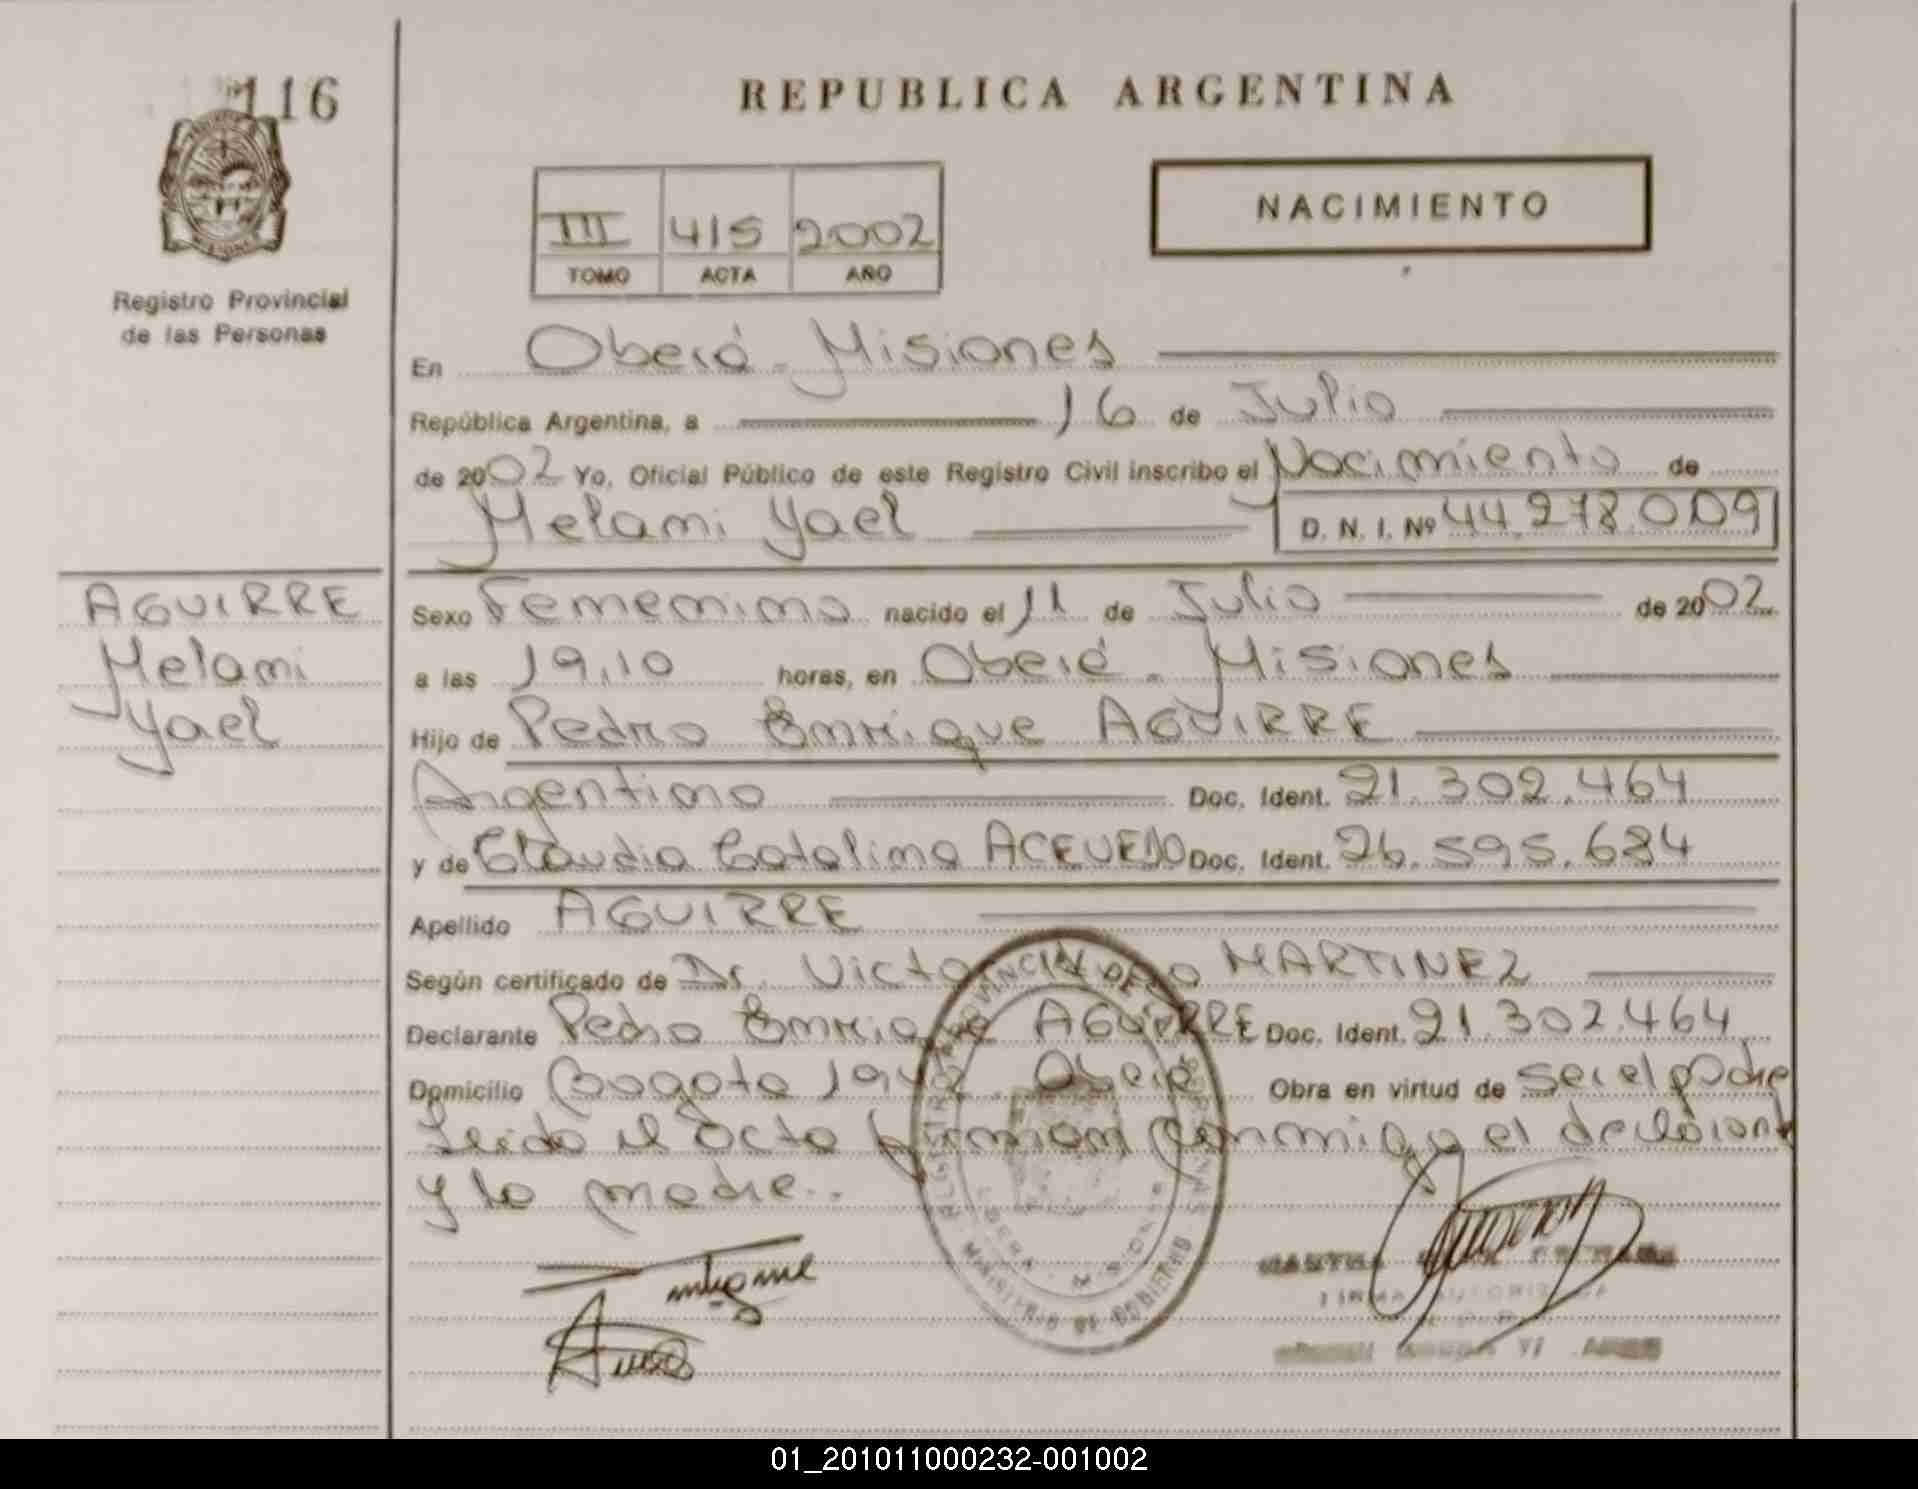 116
REPUBLICA ARGENTINA
NACIMIENTO
III 415 2002
TOMO ACTA AÑO
Registro Provincial
de las Personas
En Oberá - Misiones
República Argentina, a 16 de Julio
de 2002 Yo, Oficial Público de este Registro Civil inscribo el Nacimiento de
Melani Yael D. N. I. Nº 44.278.009
AGUIRRE
Melani
Yael
Sexo Femenino nacido el 11 de Julio de 2002
a las 19,10 horas, en Oberá - Misiones
Hijo de Pedro Enrique AGUIRRE
Argentino Doc. Ident. 21.302.464
y de Claudia Catalina ACEVEDO Doc. Ident. 26.595.684
Apellido AGUIRRE
Según certificado de Dr. MARTINEZ
Declarante Pedro Enrique AGUIRRE Doc. Ident. 21.302.464
Domicilio Bogota Oberá Obra en virtud de ser el padre
Leido el acta firman conmigo el declarante
y la madre..
REGISTRO PROVINCIAL DE LAS PERSONAS
OBERA - MISIONES
MINISTERIO DE GOBIERNO
01_201011000232-001002